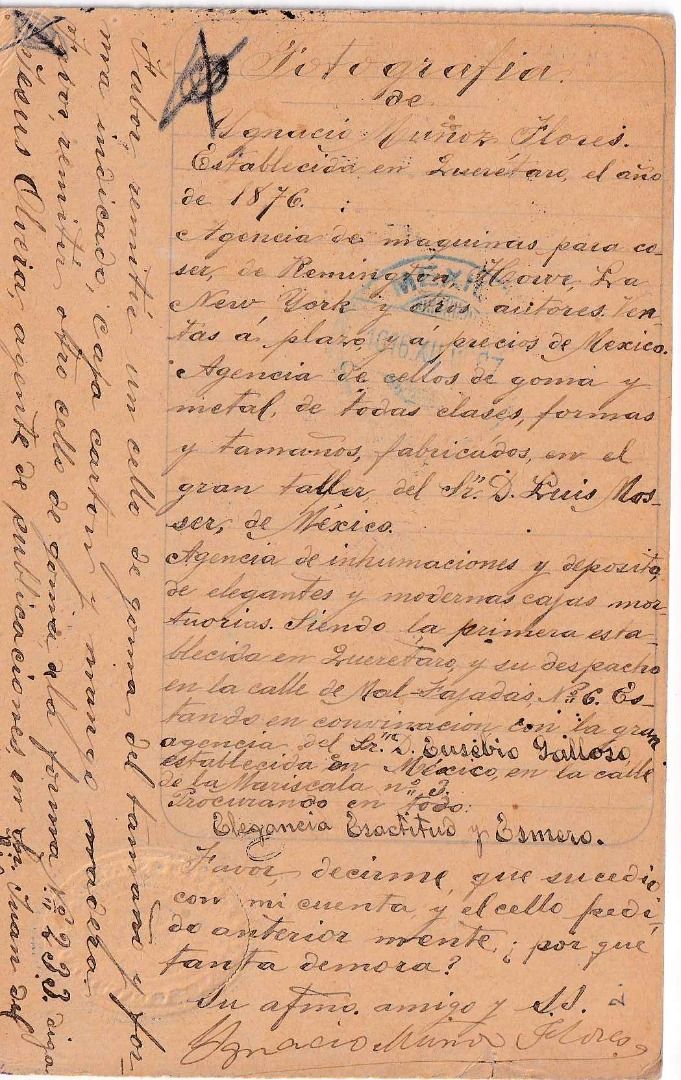 Fotografia
de
Ygnacio Muñoz Flores.
Establecida en Querétaro, el año
de 1876.
Agencia de maquinas para co-
ser, de Remington, Howe, La
New York y otros autores. Ven-
tas á plazo, y á precios de Mexico.
Agencia de cellos de goma y
metal, de todas clases, formas
y tamaños, fabricados, en el
gran taller, del Sr. D. Luis Mos-
ser, de México.
Agencia de inhumaciones y deposito,
de elegantes y modernas cajas mor-
tuorias. Siendo la primera esta-
blecida en Querétaro, y su despacho
en la calle de Mal-Fajadas, Nº 6. Es-
tando en convinacion con la gran
agencia, del Sr. D. Eusebio Galloso,
establecida en México, en la calle
de la Mariscala nº 3.
Procurando en todo:
Elegancia Esactitud y Esmero.
Favor, decirme, que sucedio
con mi cuenta, y el cello pedi-
do anterior mente, ¿por qué
tanta demora?
Su afmo. amigo y S.S.
Ygnacio Muñoz Flores
2.
Fabor, remitir un cello de goma del tamaño y for-
ma indicado, caja carton y mango madera.
remitir otro cello de goma, de la forma Nº 233. diga
Jesus Olvera, agente de publicaciones, en Sn. Juan del
MEXICO